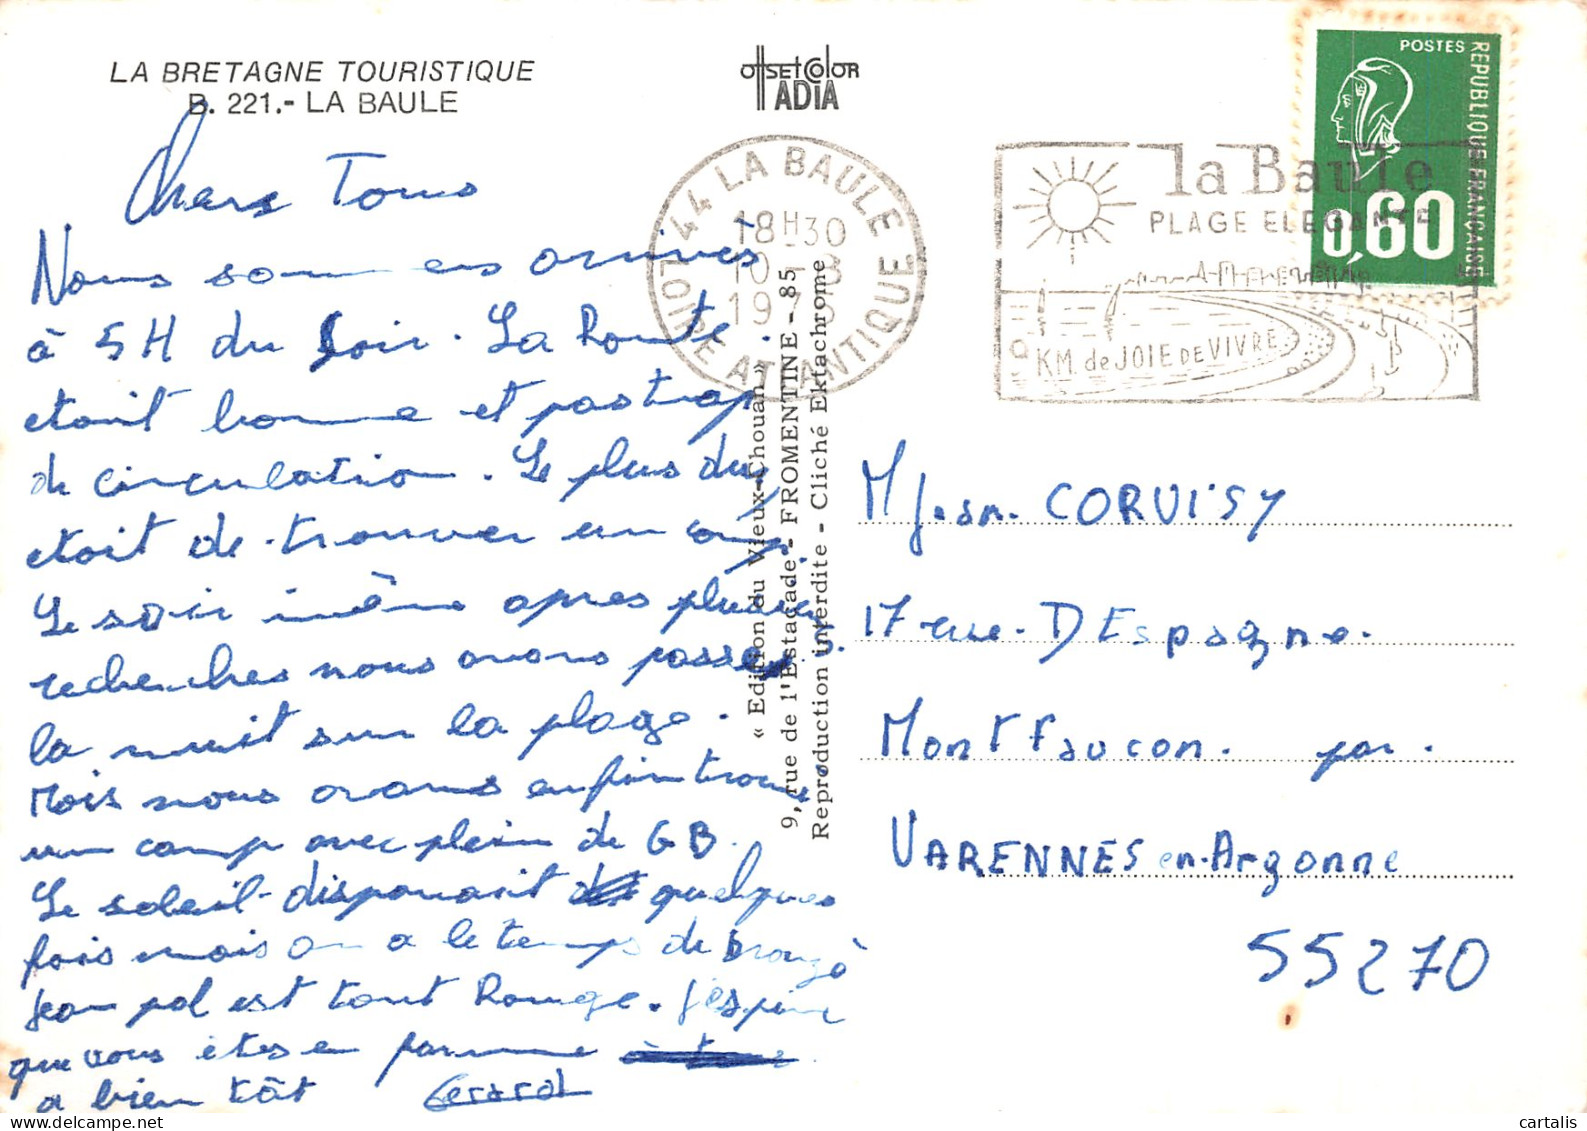 LA BRETAGNE TOURISTIQUE
B. 221.- LA BAULE
offsetcolor
ADIA
Chers Tous
Nous sommes arrivés
à 5H du Soir. La Route
etait bonne et pas trop
de circulation. Le plus dur
etait de trouver un camp.
Le soir même apres plusieurs
recherches nous avons passés
la nuit sur la plage.
Mais nous avons enfin trouvé
un camp avec plein de GB.
Le soleil disparait quelques
fois mais on a le temps de bronzé
Jean pol est tout Rouge. J'espère
que vous êtes en forme
a bien tât Gerard
44 LA BAULE
18H30
10 - 8
LOIRE ATLANTIQUE
la Baule
PLAGE ELEGANTE
9 KM de JOIE DE VIVRE
POSTES
REPUBLIQUE FRANÇAISE
0,60
« Edition du Vieux-Chouan »
9, rue de l'Estacade - FROMENTINE - 85
Reproduction interdite - Cliché Ektachrome
M Jean CORVISY
17 rue D'Espagne
Montfaucon par
VARENNES en Argonne
55270
cartalis